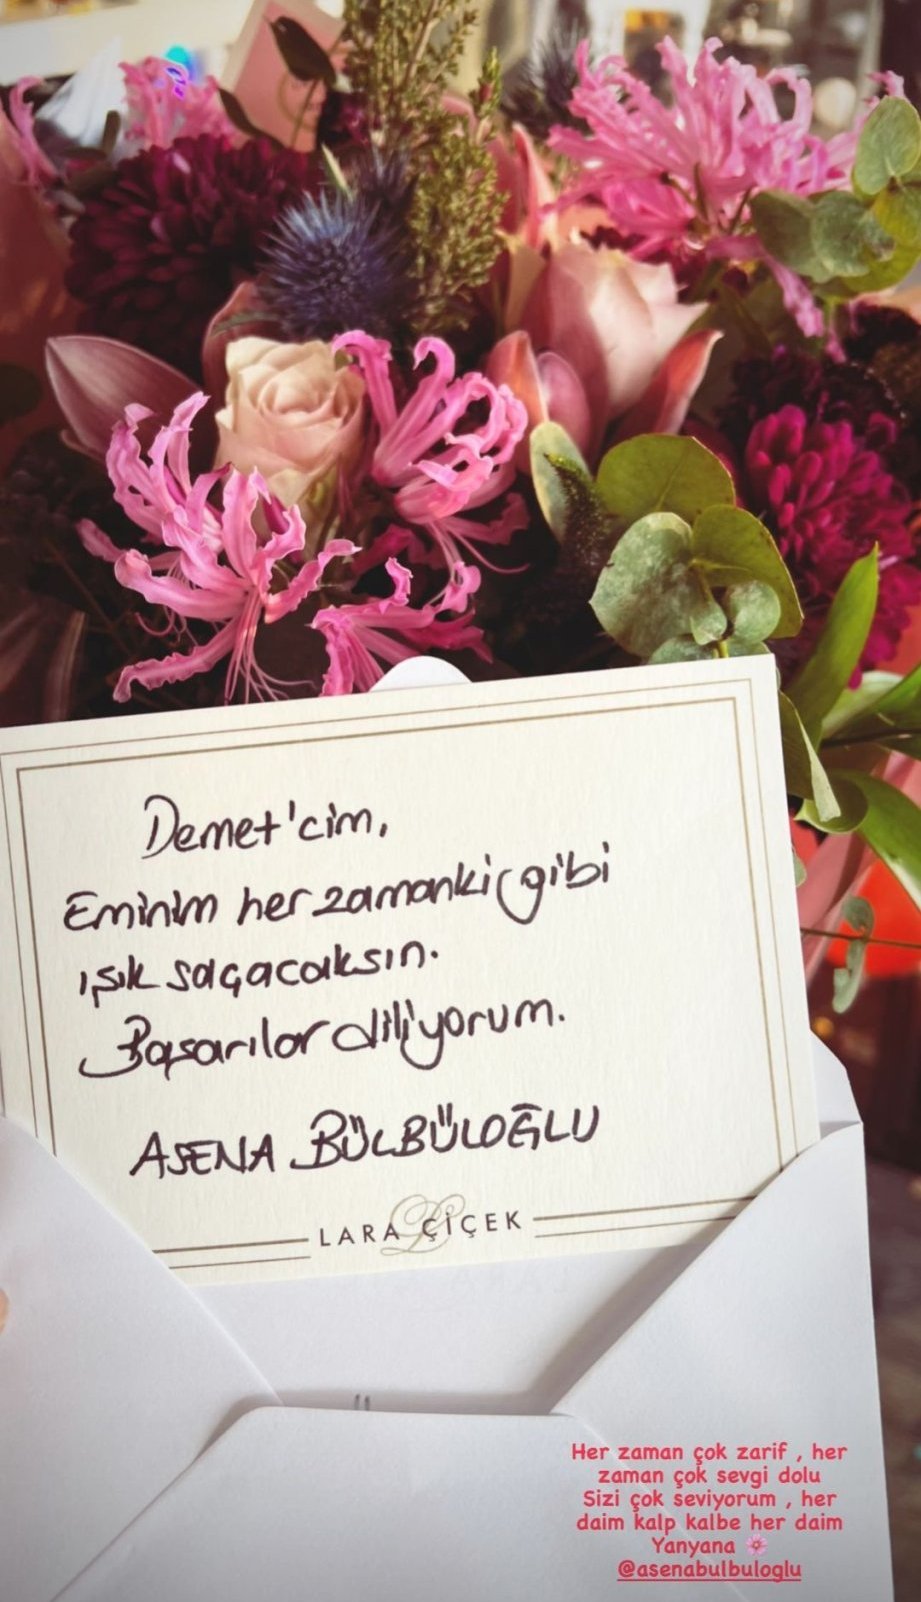 Demet'cim,
Eminim her zamanki gibi
ışık saçacaksın.
Başarılar diliyorum.
ASENA BÜLBÜLOĞLU
LARA ÇİÇEK
Her zaman çok zarif , her
zaman çok sevgi dolu
Sizi çok seviyorum , her
daim kalp kalbe her daim
Yanyana 🌸
@asenabulbuloglu